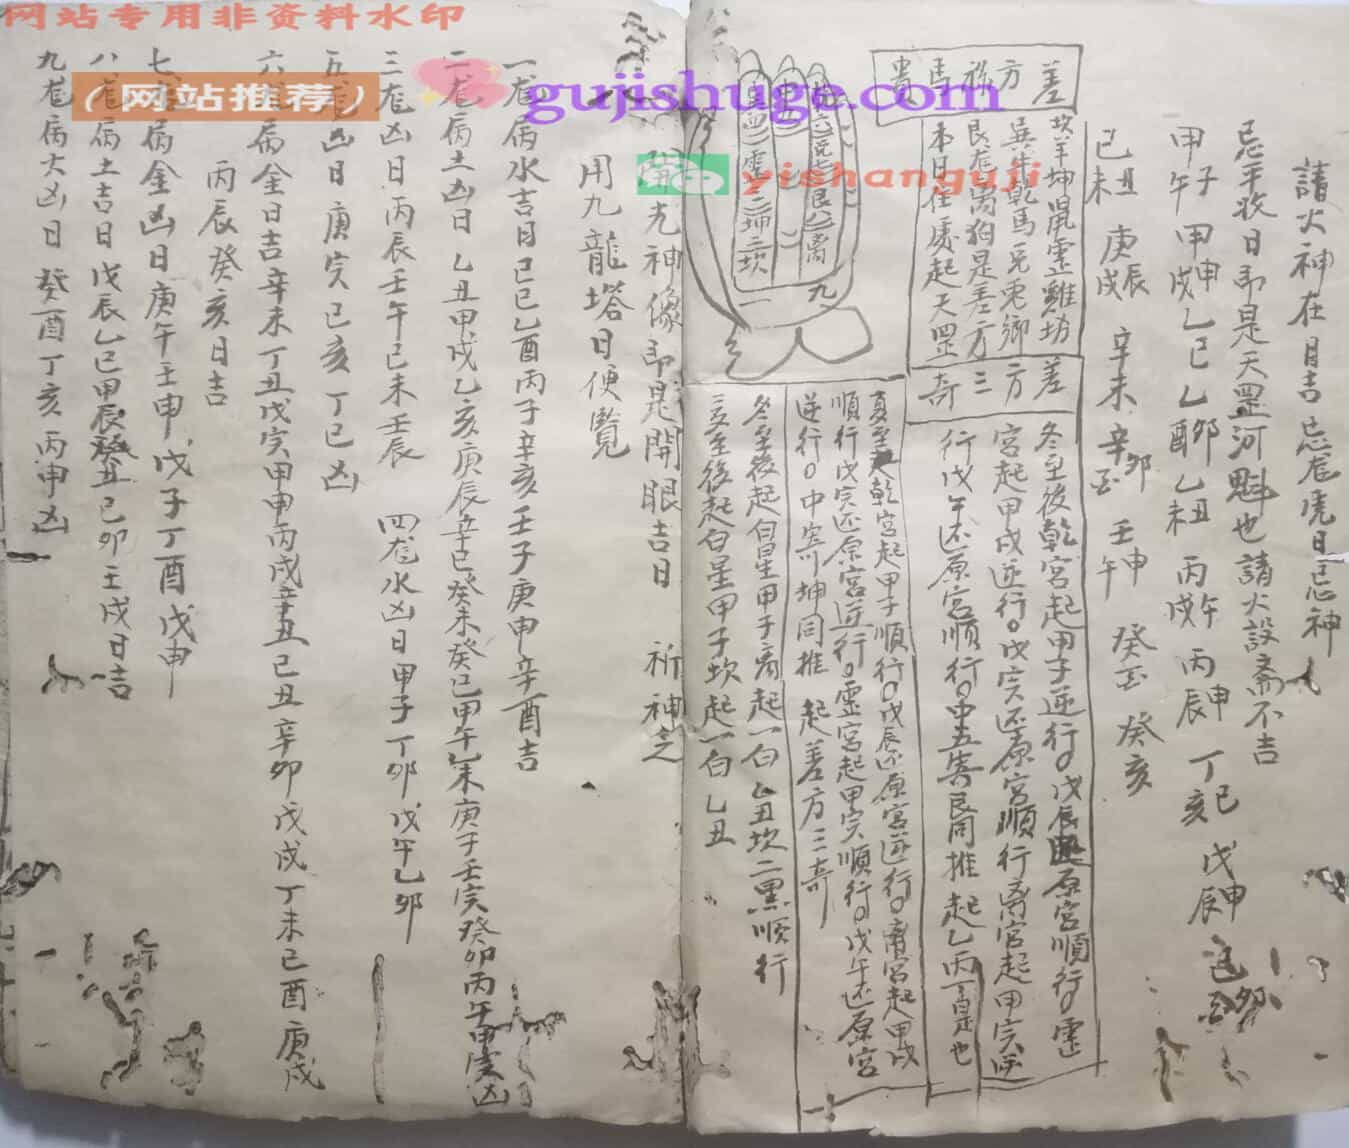 网站专用非资料水印
(网站推荐)
gujishuge.com
yishanguji
請火神在日吉忌尨虎日忌神
忌平收日即是天罡河魁也請火設斎不吉
甲子午甲申戌乙巳乙卯酉乙丑未丙午戌丙申辰丁巳亥戊申辰
己丑未庚辰戌辛未辛卯丑壬申午癸丑癸亥
差方祢馬
坎羊坤鼠震雞坊
巽牛乾馬兑兎鄉
艮尨离狗是差方
本日住處起天罡
差方三奇
冬至後乾宮起甲子逆行戊辰還原宮順行震
宮起甲戌逆行戊寅还原宮順行离宮起甲寅逆
行戊午还原宮順行中五寄艮同推起乙丙丁是也
夏至乾宮起甲子順行戊辰还原宮逆行离宮起甲戌
順行戊寅还原宮逆行震宮起甲寅順行戊午还原宮
逆行中寄坤同推起差方三奇
冬至後起白星甲子离起一白乙丑坎二黑順行
夏至後起白星甲子坎起一白乙丑
開光神像即是開眼吉日 祈神
用九龍塔日便覽
一尨病水吉日己巳乙酉丙子辛亥壬子庚申辛酉吉
二尨病土凶日乙丑甲戌乙亥庚辰辛巳癸未癸巳甲午乙未庚子壬寅癸卯丙午甲寅凶
三尨凶日丙辰壬午己未壬辰 四尨水凶日甲子丁卯戊午乙卯
五尨凶日庚寅己亥丁巳凶
六尨病金日吉辛未丁丑戊寅甲申丙戌辛丑己丑辛卯戊戌丁未己酉庚戌
丙辰癸亥日吉
七尨病金凶日庚午壬申戊子丁酉戊申
八尨病土吉日戊辰乙巳甲辰癸丑己卯壬戌日吉
九尨病大凶日癸酉丁亥丙申凶